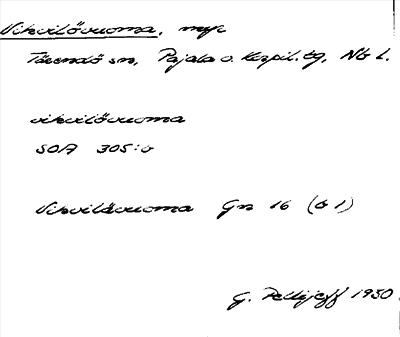 Vihvilövuoma, myr
Tärendö sn, Pajala o. Korpil. tg, Nb l.
vihvilövuoma
SOA 305:6
Vihvilävuoma Gn 16 (b 1)
G. Pellijeff 1950